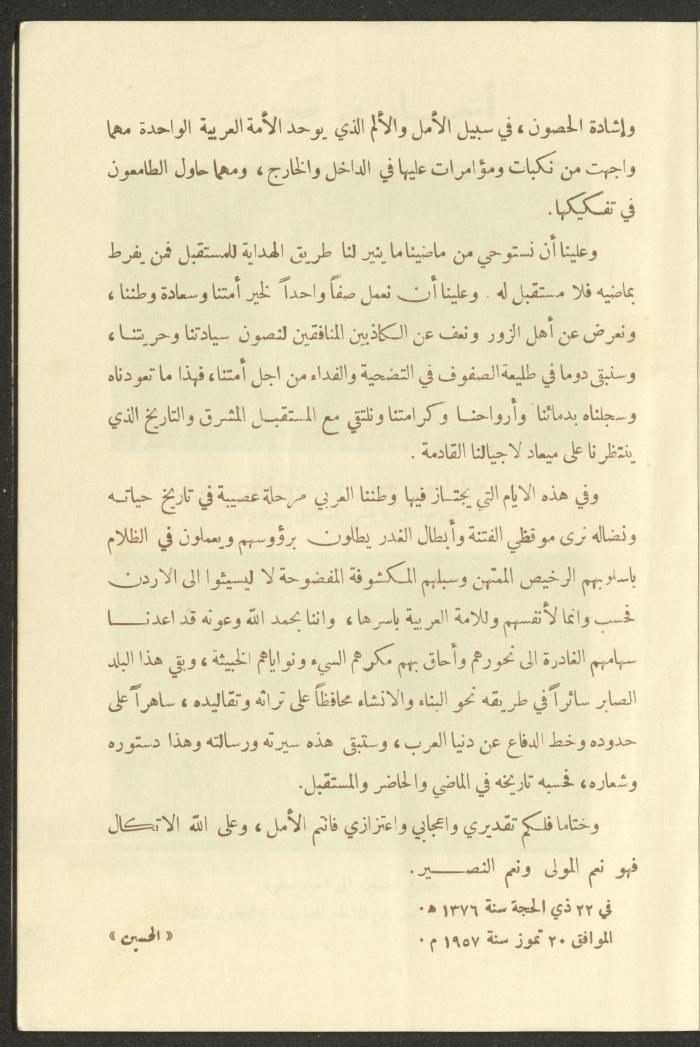 وإشادة الحصون، في سبيل الأمل والألم الذي يوحد الأمة العربية الواحدة مهما
واجهت من نكبات ومؤامرات عليها في الداخل والخارج، ومهما حاول الطامعون
في تفكيكها.
وعلينا أن نستوحي من ماضينا ما ينير لنا طريق الهداية للمستقبل فمن يفرط
بماضيه فلا مستقبل له. وعلينا أن نعمل صفاً واحداً لخير أمتنا وسعادة وطننا،
ونعرض عن أهل الزور ونعف عن الكاذبين المنافقين لنصون سيادتنا وحريتنا،
وسنبقى دوما في طليعة الصفوف في التضحية والفداء من اجل أمتنا، فهذا ما تعودناه
وسجلناه بدمائنا وأرواحنا وكرامتنا ونلتقي مع المستقبل المشرق والتاريخ الذي
ينتظرنا على ميعاد لاجيالنا القادمة.
وفي هذه الايام التي يجتاز فيها وطننا العربي مرحلة عصيبة في تاريخ حياته
ونضاله نرى موقظي الفتنة وأبطال الغدر يطلون برؤوسهم ويعملون في الظلام
باسلوبهم الرخيص الممتهن وسبلهم المكشوفة المفضوحة لا ليسيئوا الى الاردن
فحسب وانما لأنفسهم وللامة العربية باسرها، واننا بحمد الله وعونه قد اعدنا
سهامهم الغادرة الى نحورهم وأحاق بهم مكرهم السيء ونواياهم الخبيثة، وبقي هذا البلد
الصابر سائراً في طريقه نحو البناء والانشاء محافظاً على تراثه وتقاليده، ساهراً على
حدوده وخط الدفاع عن دنيا العرب، وستبقى هذه سيرته ورسالته وهذا دستوره
وشعاره، فحسبه تاريخه في الماضي والحاضر والمستقبل.
وختاما فلكم تقديري واعجابي واعتزازي فانتم الأمل، وعلى الله الاتكال
فهو نعم المولى ونعم النصير.
في ٢٢ ذي الحجة سنة ١٣٧٦ ه.
الموافق ٢٠ تموز سنة ١٩٥٧ م.
« الحسين »